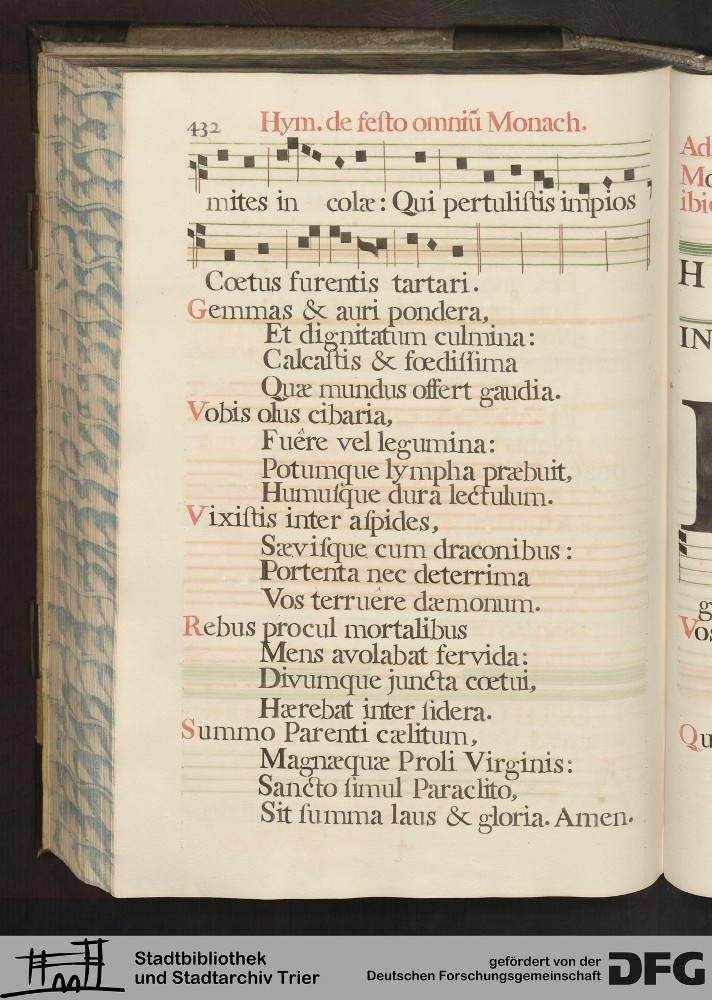 432 Hym. de feſto omniū Monach.
mites in colæ: Qui pertuliſtis impios
Cœtus furentis tartari.
Gemmas & auri pondera,
Et dignitatum culmina:
Calcaſtis & fœdiſſima
Quæ mundus offert gaudia.
Vobis olus cibaria,
Fuêre vel legumina:
Potumque lympha præbuit,
Humuſque dura lectulum.
Vixiſtis inter aſpides,
Sæviſque cum draconibus:
Portenta nec deterrima
Vos terruêre dæmonum.
Rebus procul mortalibus
Mens avolabat fervida:
Divumque juncta cœtui,
Hærebat inter ſidera.
Summo Parenti cælitum,
Magnæquæ Proli Virginis:
Sancto ſimul Paraclito,
Sit ſumma laus & gloria. Amen.
Ad
Mo
ibi
H
IN
g
Vos
Qu
Stadtbibliothek
und Stadtarchiv Trier
gefördert von der
Deutschen Forschungsgemeinschaft
DFG